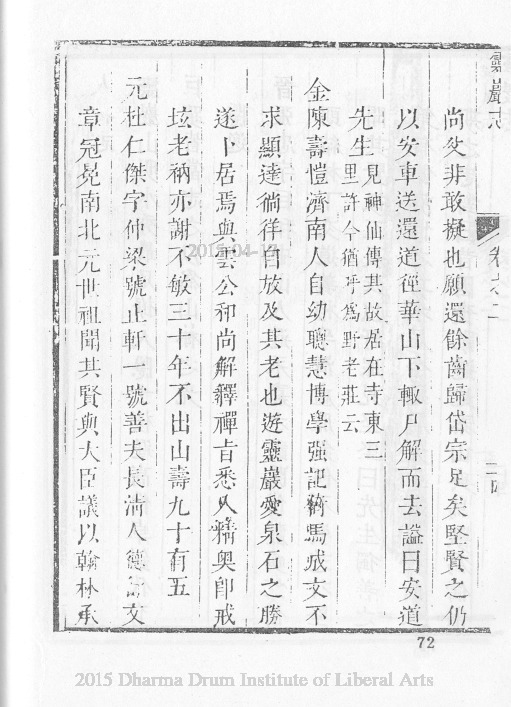 靈巖志
卷之二
二四
尚父非敢擬也願還餘齒歸岱宗足矣堅賢之仍
以安車送還道徑華山下輙尸解而去謚曰安道
先生見神仙傳其故居在寺東三
里許今猶呼爲野老莊云
金陳壽愷濟南人自幼聰慧博學强記猗馬成文不
求顯達徜徉自放及其老也遊靈巖愛泉石之勝
遂卜居焉與雲公和尚解釋禪旨悉入精奥卽戒
壇老衲亦謝不敏三十年不出山壽九十有五
元杜仁傑字仲梁號止軒一號善夫長清人德文
章冠晃南北元世祖聞其賢與大臣議以翰林承
72
2015-04-17
2015 Dharma Drum Institute of Liberal Arts